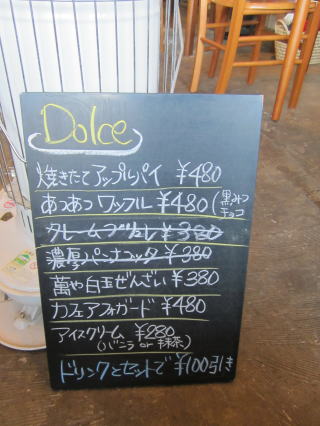 Dolce
焼きたてアップルパイ ¥480
あつあつ ワッフル ¥480(黒みつ
チョコ
クレームブリュレ ¥380
濃厚パンナコッタ ¥380
萬や白玉ぜんざい ¥380
カフェアフォガード ¥480
アイスクリーム ¥280
(バニラ or 抹茶)
ドリンクとセットで ¥100引き